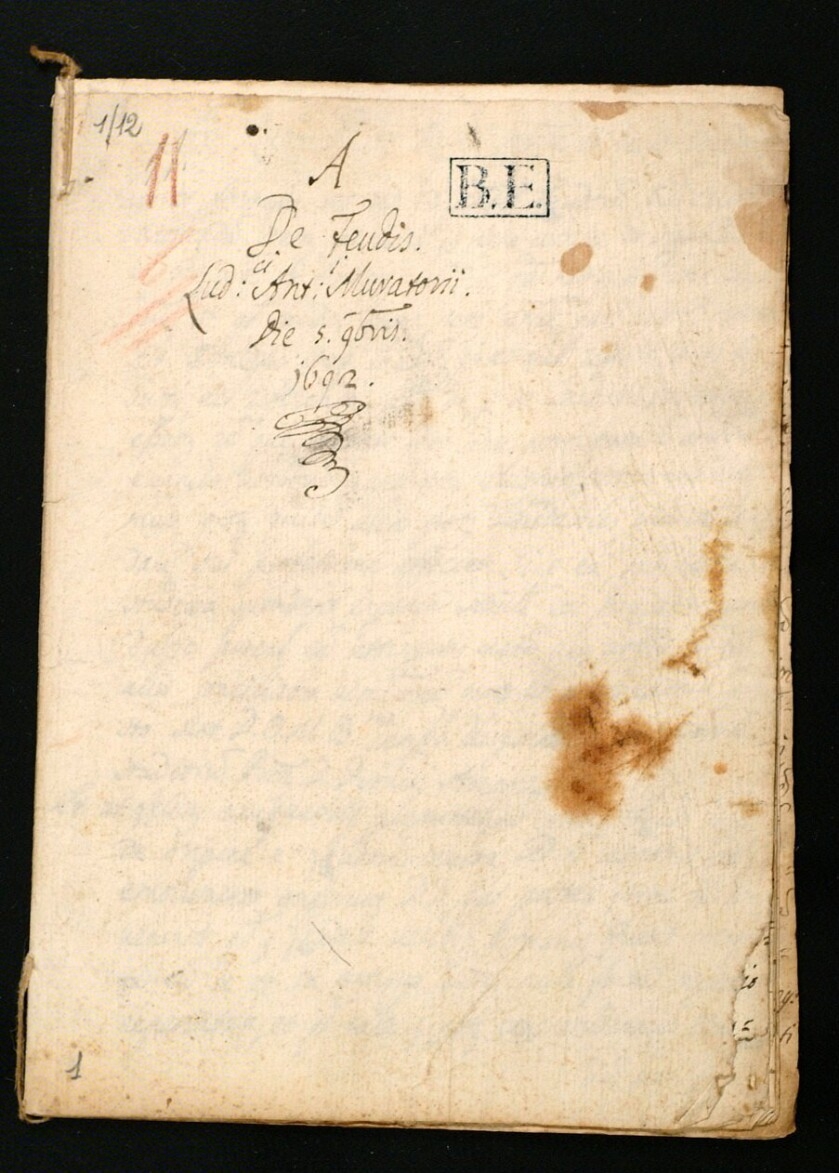 1/12
11
A
B.E.
De Feudis.
Lud:ci Ant:i Muratorii.
Die 5. 9bris.
1692.
1